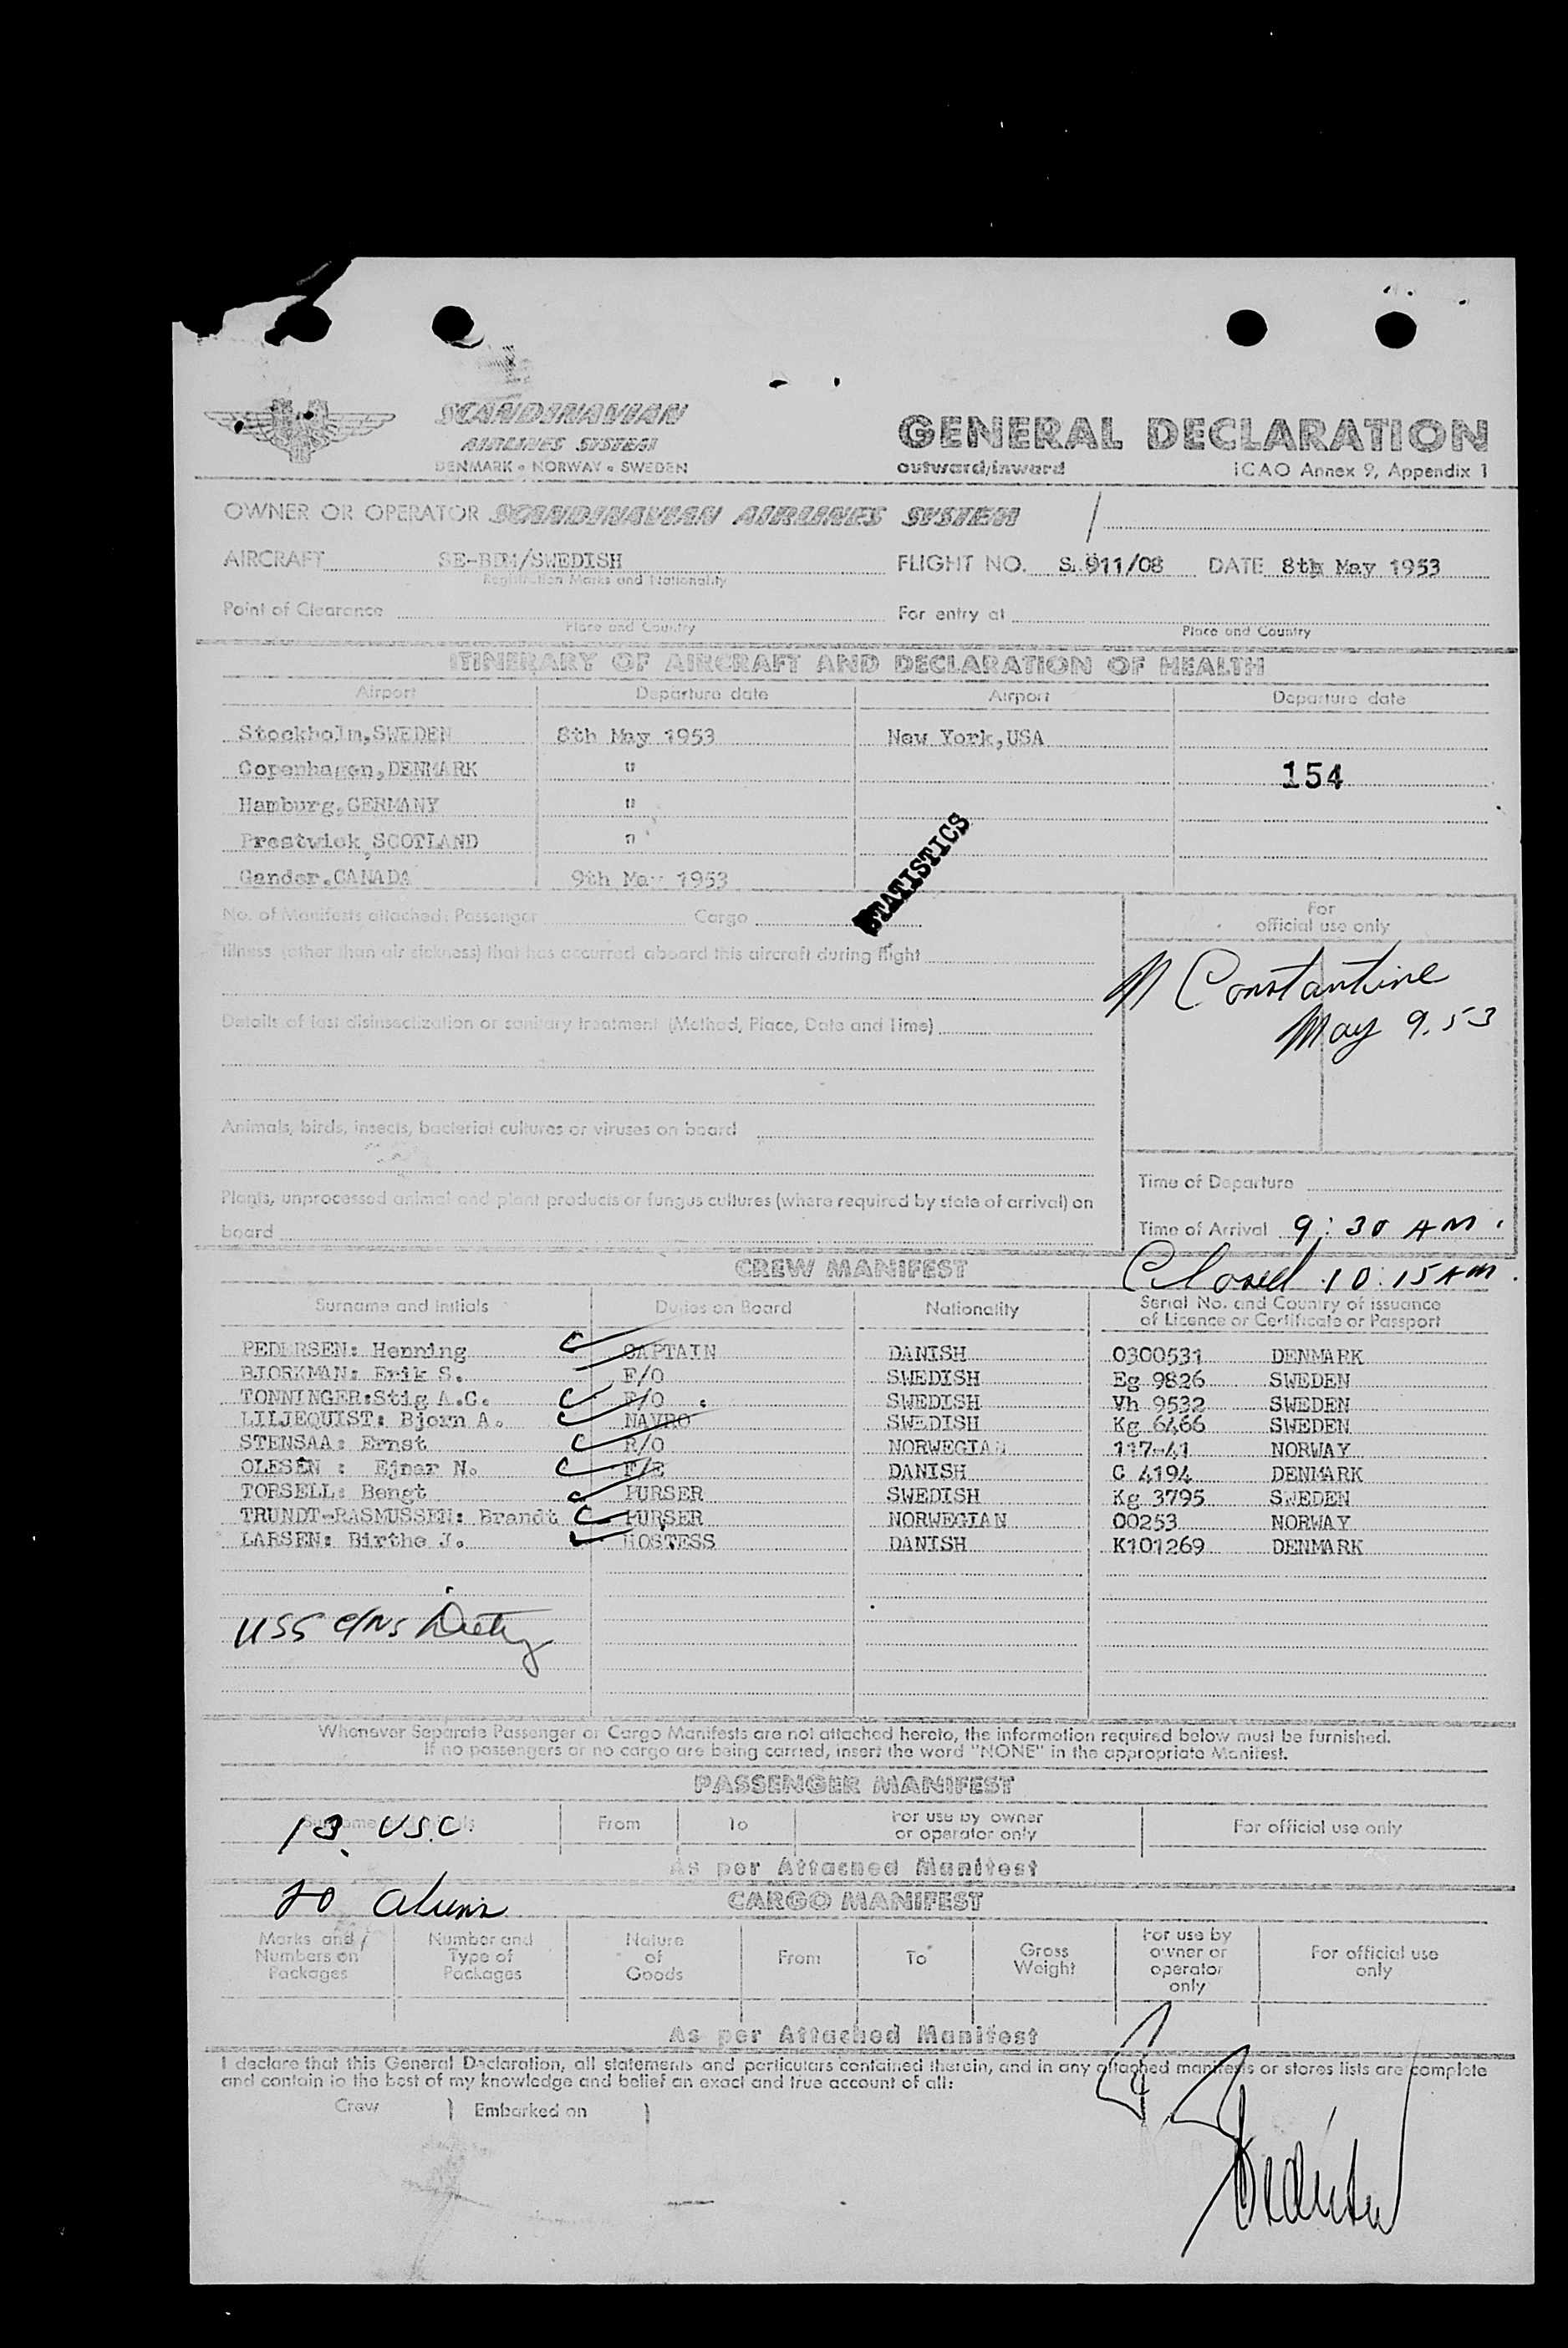 SCANDINAVIAN
AIRLINES SYSTEM
DENMARK • NORWAY • SWEDEN
GENERAL DECLARATION
outward/inward ICAO Annex 9, Appendix 1
OWNER OR OPERATOR SCANDINAVIAN AIRLINES SYSTEM
AIRCRAFT SE-BDM/SWEDISH FLIGHT NO. S. 911/08 DATE 8th May 1953
Registration Marks and Nationality
Point of Clearance For entry at
Place and Country Place and Country
ITINERARY OF AIRCRAFT AND DECLARATION OF HEALTH
Airport Departure date Airport Departure date
Stockholm,SWEDEN 8th May 1953 New York,USA
Copenhagen,DENMARK " 154
Hamburg,GERMANY "
Prestwick,SCOTLAND "
Gander,CANADA 9th May 1953
STATISTICS
No. of Manifests attached: Passenger Cargo
For
official use only
Illness (other than air sickness) that has occurred aboard this aircraft during flight
M Constantine
May 9.53
Details of last disinsectization or sanitary treatment (Method, Place, Date and Time)
Animals, birds, insects, bacterial cultures or viruses on board
Time of Departure
Plants, unprocessed animal and plant products or fungus cultures (where required by state of arrival) on
board
Time of Arrival 9:30 AM.
Closed 10:15 AM.
CREW MANIFEST
Surname and Initials Duties on Board Nationality Serial No. and Country of issuance
of Licence or Certificate or Passport
PEDERSEN: Henning CAPTAIN DANISH 0300531 DENMARK
BJORKMAN: Erik S. F/O SWEDISH Eg 9826 SWEDEN
TONNINGER:Stig A.C. F/O SWEDISH Vh 9532 SWEDEN
LILJEQUIST: Bjorn A. NAVRO SWEDISH Kg 6466 SWEDEN
STENSAA: Ernst R/O NORWEGIAN 117-41 NORWAY
OLESEN : Ejnar N. F/E DANISH C 4194 DENMARK
TORSELL: Bengt PURSER SWEDISH Kg 3795 SWEDEN
TRUNDT-RASMUSSEN: Brandt PURSER NORWEGIAN 00253 NORWAY
LARSEN: Birthe J. HOSTESS DANISH K101269 DENMARK
USS
Whenever Separate Passenger or Cargo Manifests are not attached hereto, the information required below must be furnished.
If no passengers or no cargo are being carried, insert the word "NONE" in the appropriate Manifest.
PASSENGER MANIFEST
Surname and Initials From To For use by owner
or operator only For official use only
13 USC.
As per Attached Manifest
20 aliens
CARGO MANIFEST
Marks and
Numbers on
Packages
Number and
Type of
Packages
Nature
of
Goods
From To Gross
Weight
For use by
owner or
operator
only
For official use
only
As per Attached Manifest
I declare that this General Declaration, all statements and particulars contained therein, and in any attached manifests or stores lists are complete
and contain to the best of my knowledge and belief an exact and true account of all:
Crew ) Embarked on )